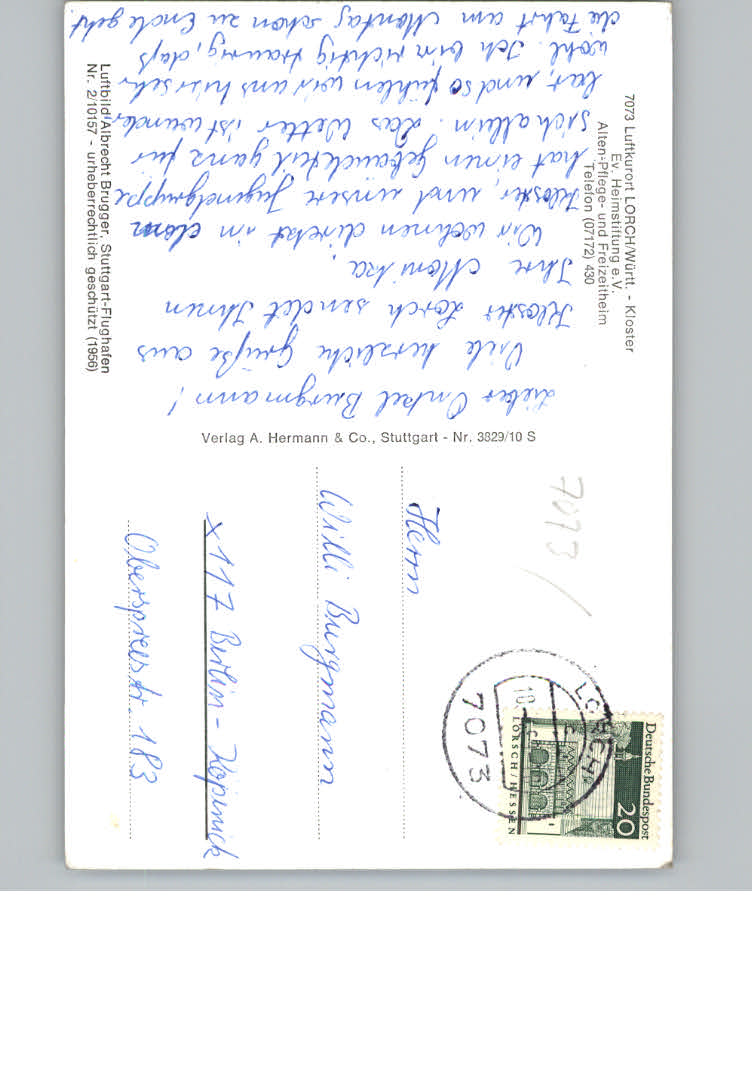 7073 Luftkurort LORCH/Württ. - Kloster
Ev. Heimstiftung e.V.
Alten-Pflege- und Freizeitheim
Telefon (07172) 430
Lieber Onkel Burgmann!
Viele herzliche Grüße aus
Kloster Lorch sendet Ihnen
Ihre Monika.
Wir wohnen direkt in dem
Kloster, und unsere Jugendgruppe
hat einen Gebäudeteil ganz für
sich allein. Das Wetter ist wunder-
bar, und so fühlen wir uns hier sehr
wohl. Ich bin richtig traurig, daß
die Fahrt am Montag schon zu Ende geht.
Luftbild Albrecht Brugger, Stuttgart-Flughafen
Nr. 2/10157 - urheberrechtlich geschützt (1956)
Verlag A. Hermann & Co., Stuttgart - Nr. 3829/10 S
7073 /
Deutsche Bundespost
20
LORSCH/HESSEN
LORCH
7073
Herrn
Willi Burgmann
x 117 Berlin - Köpenick
Oberspreestr. 183